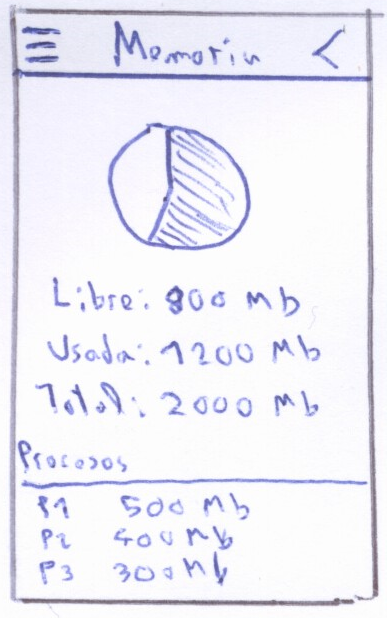 Memoria
Libre: 800 Mb
Usada: 1200 Mb
Total: 2000 Mb
Procesos
P1 500 Mb
P2 400 Mb
P3 300 Mb